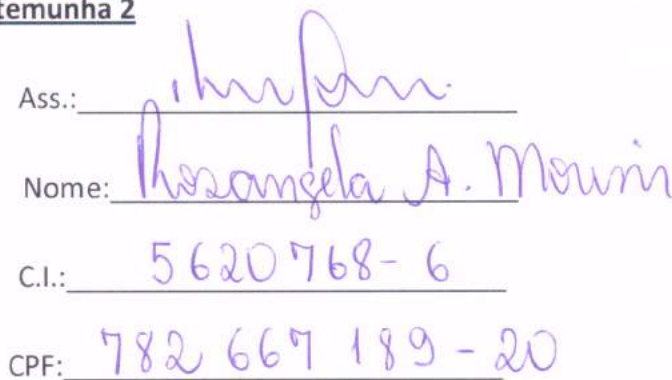 temunha 2
Ass.:
Nome: Rosangela A. Mourin
C.I.: 5620768-6
CPF: 782 667 189-20